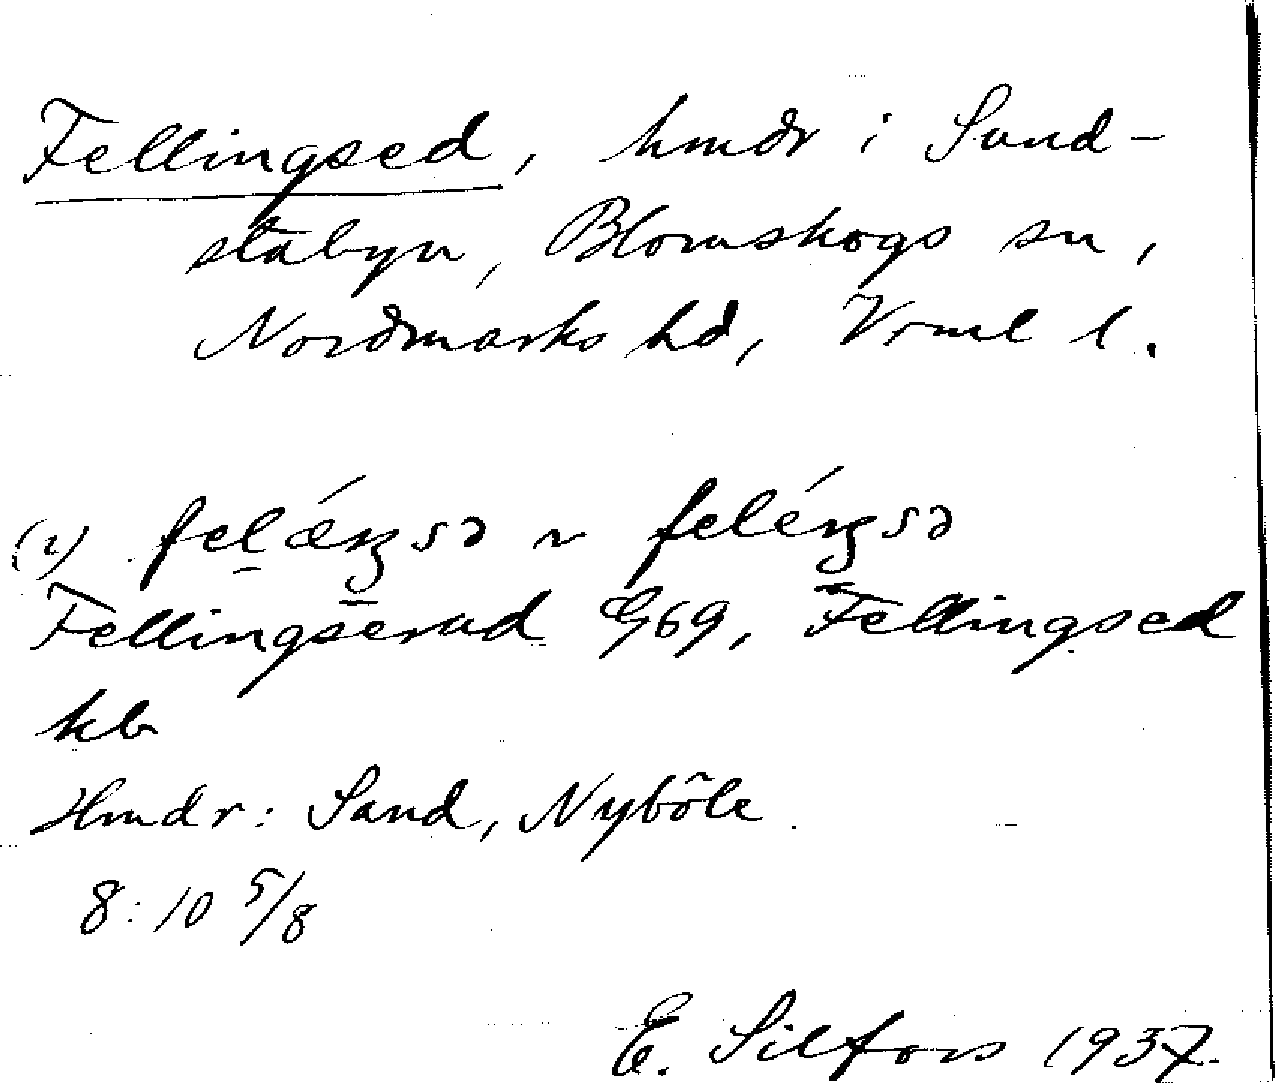 Fellingsed, hmdr i Sand-
stabyn, Blomskogs sn,
Nordmarks hd, Vrml l.
(1) felǽŋsə ~ feléŋsə
Fellingserud G69, Fellingsed
kb
Hmdr: Sand, Nyböle
8:10 5/8
E. Silfors 1937.